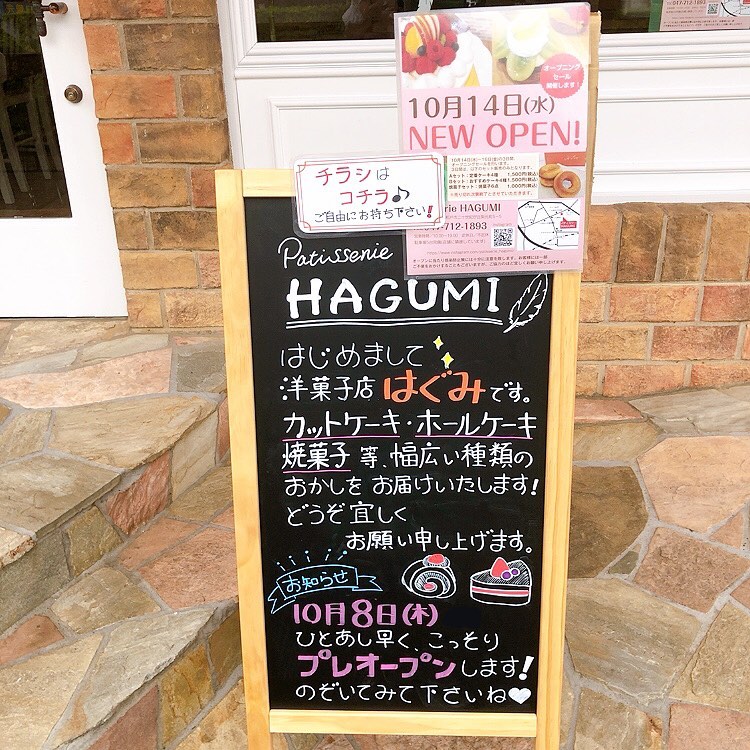 オープニング
セール
開催します!
10月14日(水)
NEW OPEN!
Aセット:定番ケーキ4種 1,500円(税込)
Bセット:おすすめケーキ4種 1,500円(税込)
焼菓子セット:焼菓子6点 1,000円(税込)
rie HAGUMI
047-712-1893
チラシは
コチラ♪
ご自由にお持ち下さい!
Patisserie
HAGUMI
はじめまして
洋菓子店 はぐみです。
カットケーキ・ホールケーキ
焼菓子 等、幅広い種類の
おかしを お届けいたします!
どうぞ 宜しく
お願い申し上げます。
お知らせ
10月8日(木)
ひとあし早く、こっそり
プレオープンします!
のぞいてみて下さいね♥